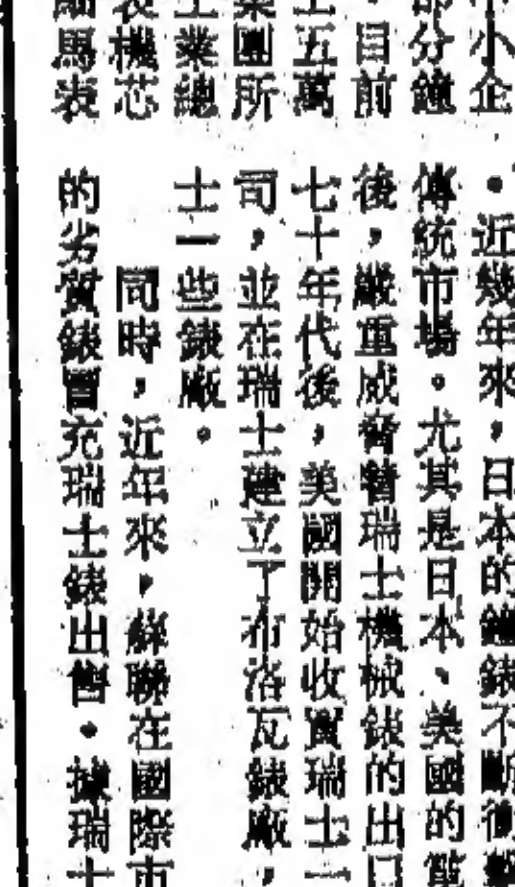 小企
部分鐘
。目前
五萬
團所
業總
表機芯
馬表
。近幾年來，日本的鐘錶不斷衝
傳統市場。尤其是日本、美國的電
後，嚴重威脅着瑞士機械錶的出口
七十年代後，美國開始收買瑞士一
司，並在瑞士建立了布洛瓦錶廠，
士一些錶廠。
同時，近年來，蘇聯在國際市
的劣質錶冒充瑞士錶出售。據瑞士